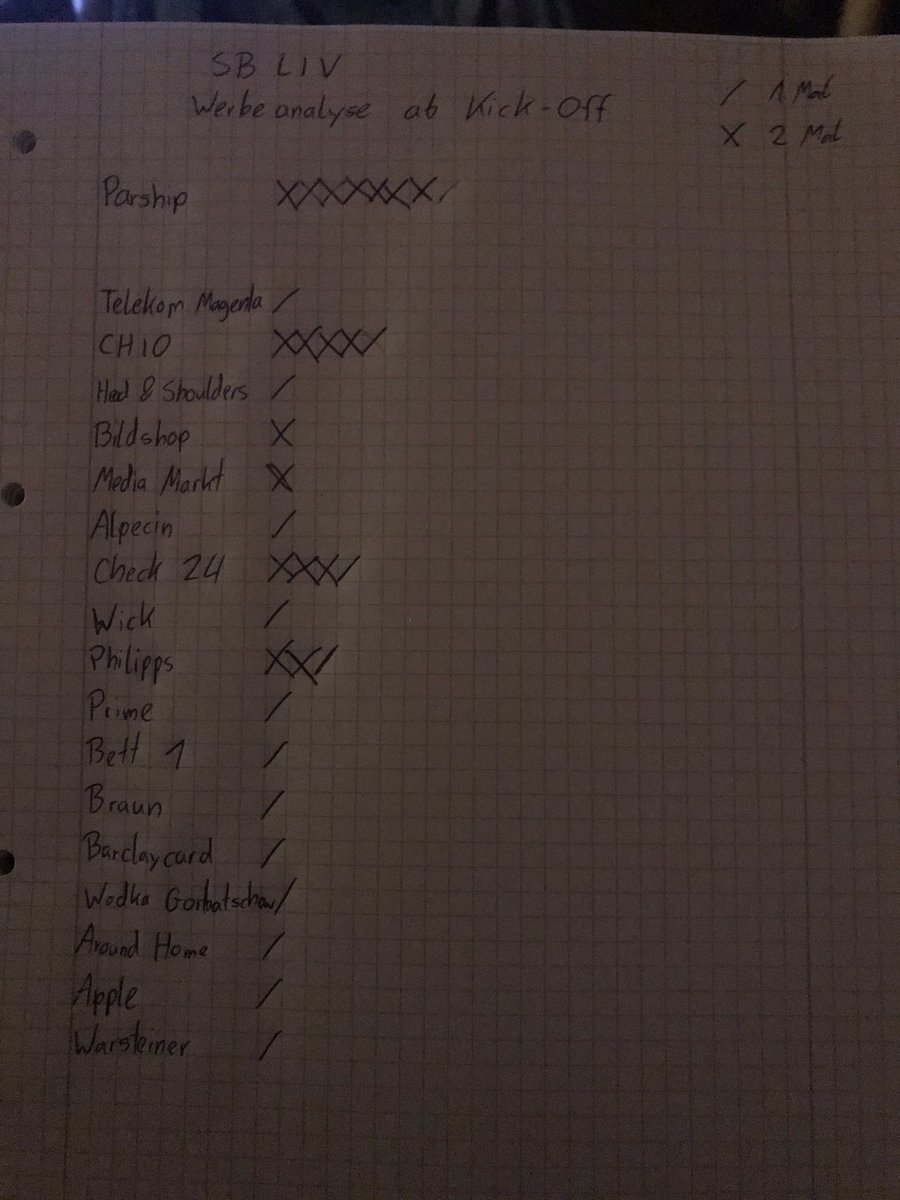 SB LIV
Werbeanalyse ab Kick-Off
/ 1 Mal
X 2 Mal
Parship XXXXXX/
Telekom Magenta /
CHIO XXXX/
Head & Shoulders /
Bildshop X
Media Markt X
Alpecin /
Check 24 XXX/
Wick /
Philipps XX/
Prime /
Bett 1 /
Braun /
Barclaycard /
Wodka Gorbatschow /
Around Home /
Apple /
Warsteiner /